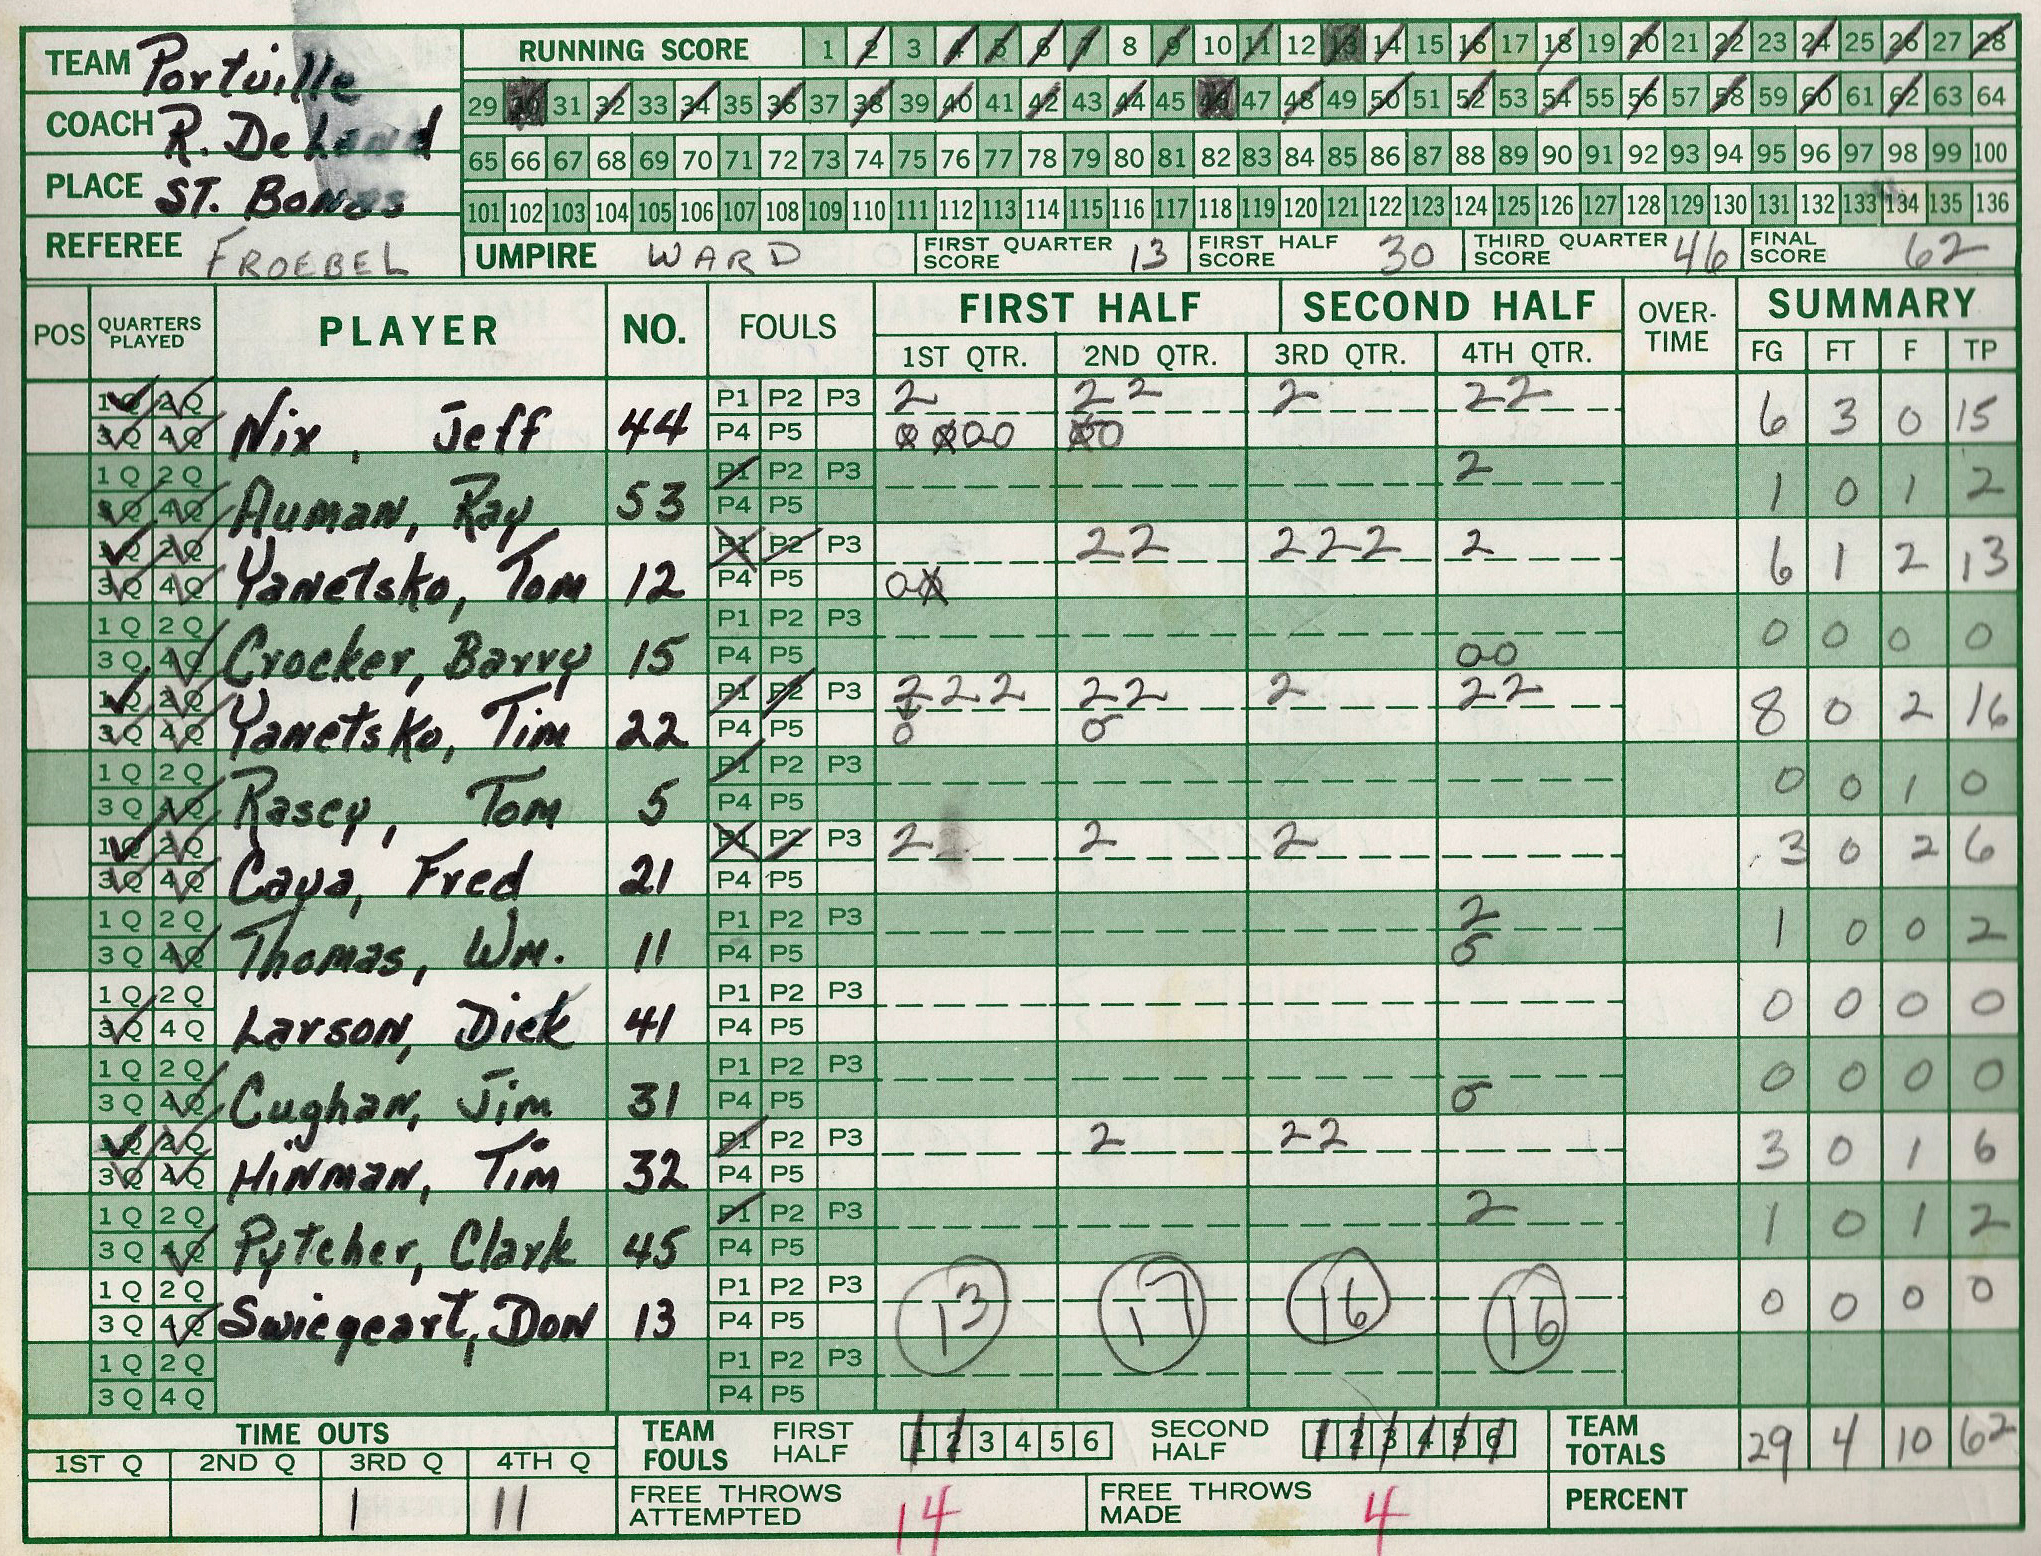 TEAM Portville
COACH R. DeLand
PLACE ST. BONAS
REFEREE FROEBEL
RUNNING SCORE 1 2 3 4 5 6 7 8 9 10 11 12 13 14 15 16 17 18 19 20 21 22 23 24 25 26 27 28
29 30 31 32 33 34 35 36 37 38 39 40 41 42 43 44 45 46 47 48 49 50 51 52 53 54 55 56 57 58 59 60 61 62 63 64
65 66 67 68 69 70 71 72 73 74 75 76 77 78 79 80 81 82 83 84 85 86 87 88 89 90 91 92 93 94 95 96 97 98 99 100
101 102 103 104 105 106 107 108 109 110 111 112 113 114 115 116 117 118 119 120 121 122 123 124 125 126 127 128 129 130 131 132 133 134 135 136
UMPIRE WARD FIRST QUARTER SCORE 13 FIRST HALF SCORE 30 THIRD QUARTER SCORE 46 FINAL SCORE 62
POS QUARTERS PLAYED PLAYER NO. FOULS FIRST HALF SECOND HALF OVER-TIME SUMMARY
1ST QTR. 2ND QTR. 3RD QTR. 4TH QTR. FG FT F TP
1Q 2Q Nix, Jeff 44 P1 P2 P3 2 22 2 22 6 3 0 15
3Q 4Q P4 P5 0000 00
1Q 2Q Auman, Ray 53 P1 P2 P3 2 1 0 1 2
3Q 4Q P4 P5
1Q 2Q Yanetsko, Tom 12 P1 P2 P3 22 222 2 6 1 2 13
3Q 4Q P4 P5 00
1Q 2Q Crocker, Barry 15 P1 P2 P3 0 0 0 0
3Q 4Q P4 P5 00
1Q 2Q Yanetsko, Tim 22 P1 P2 P3 222 22 2 22 8 0 2 16
3Q 4Q P4 P5 0 0
1Q 2Q Rasey, Tom 5 P1 P2 P3 0 0 1 0
3Q 4Q P4 P5
1Q 2Q Caya, Fred 21 P1 P2 P3 2 2 2 3 0 2 6
3Q 4Q P4 P5
1Q 2Q Thomas, Wm. 11 P1 P2 P3 2 1 0 0 2
3Q 4Q P4 P5 0
1Q 2Q Larson, Dick 41 P1 P2 P3 0 0 0 0
3Q 4Q P4 P5
1Q 2Q Cughan, Jim 31 P1 P2 P3 0 0 0 0
3Q 4Q P4 P5 0
1Q 2Q Hinman, Tim 32 P1 P2 P3 2 22 3 0 1 6
3Q 4Q P4 P5
1Q 2Q Pytcher, Clark 45 P1 P2 P3 2 1 0 1 2
3Q 4Q P4 P5
1Q 2Q Swiegeart, Don 13 P1 P2 P3 13 17 16 16 0 0 0 0
3Q 4Q P4 P5
1Q 2Q P1 P2 P3
3Q 4Q P4 P5
TIME OUTS TEAM FOULS FIRST HALF 1 2 3 4 5 6 SECOND HALF 1 2 3 4 5 6 TEAM TOTALS 29 4 10 62
1ST Q 2ND Q 3RD Q 4TH Q
1 11 FREE THROWS ATTEMPTED 14 FREE THROWS MADE 4 PERCENT